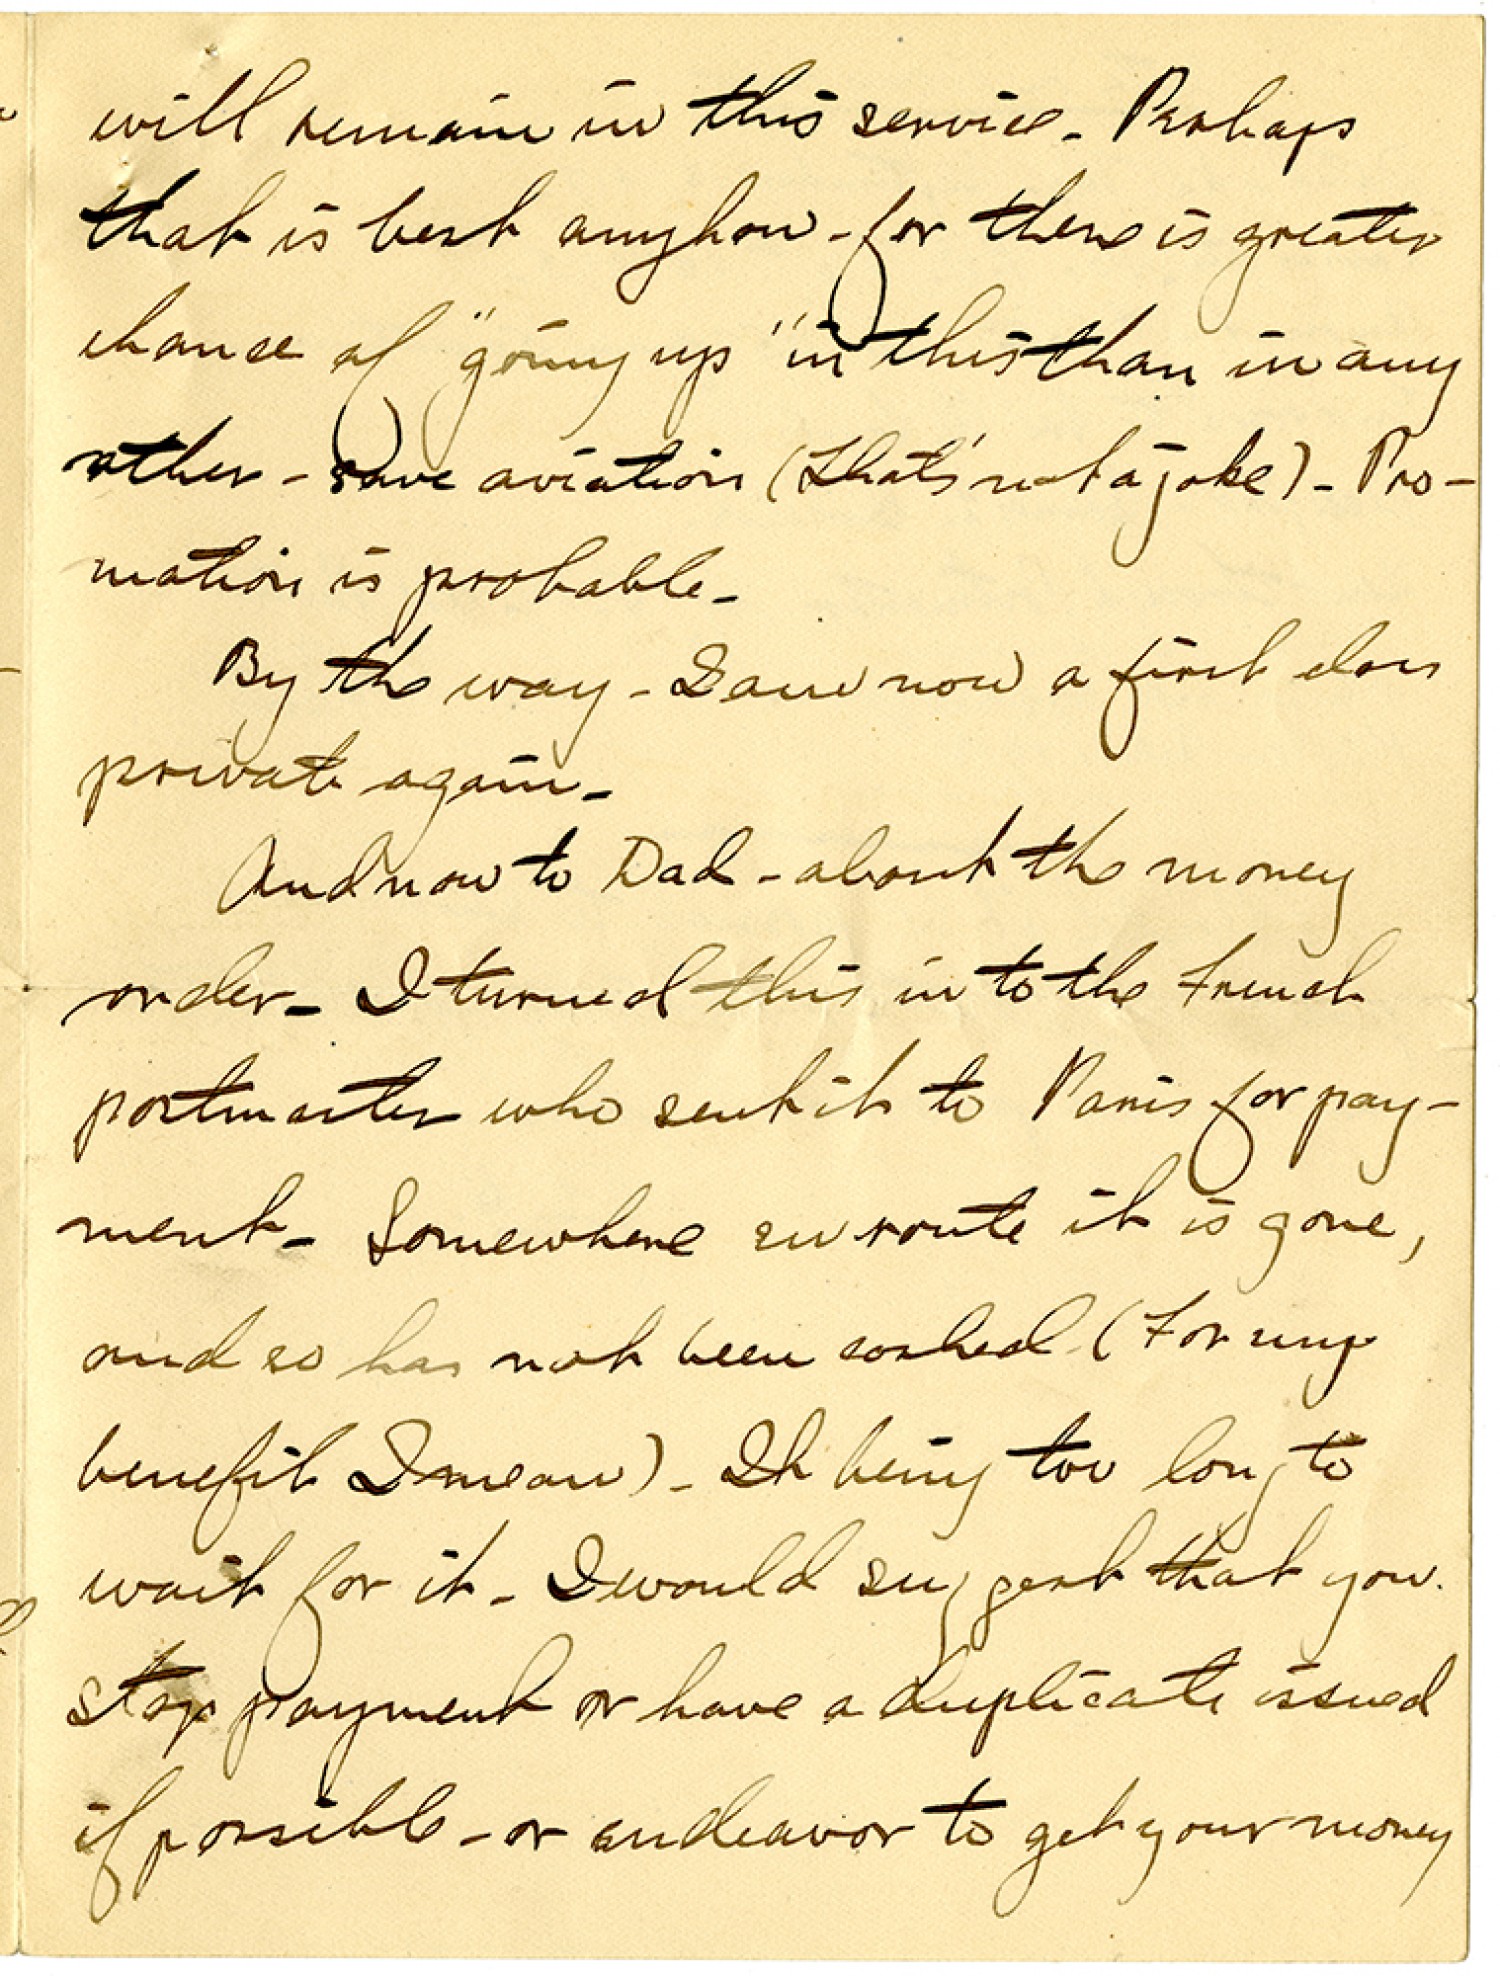 will remain in this service - Perhaps
that is best anyhow - for there is greater
chance of "going up" in this than in any
other - save aviation (that's not a joke) - Pro-
motion is probable -
By the way - I am now a first class
private again -
And now to Dad - about the money
order - I turned this in to the French
postmaster who sent it to Paris for pay-
ment - Somewhere en route it is gone,
and so has not been cashed (For my
benefit I mean) - It being too long to
wait for it - I would suggest that you
stop payment or have a duplicate issued
if possible - or endeavor to get your money